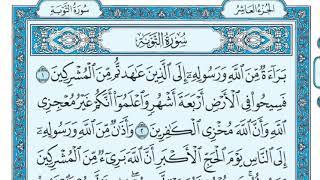 سُورَةُ التَّوْبَةِ
الجُزْءُ العَاشِرُ
سُورَةُ التَّوْبَةِ
بَرَآءَةٌ مِّنَ ٱللَّهِ وَرَسُولِهِۦٓ إِلَى ٱلَّذِينَ عَٰهَدتُّم مِّنَ ٱلْمُشْرِكِينَ ١
فَسِيحُوا۟ فِى ٱلْأَرْضِ أَرْبَعَةَ أَشْهُرٍ وَٱعْلَمُوٓا۟ أَنَّكُمْ غَيْرُ مُعْجِزِى
ٱللَّهِ وَأَنَّ ٱللَّهَ مُخْزِى ٱلْكَٰفِرِينَ ٢ وَأَذَٰنٌ مِّنَ ٱللَّهِ وَرَسُولِهِۦٓ
إِلَى ٱلنَّاسِ يَوْمَ ٱلْحَجِّ ٱلْأَكْبَرِ أَنَّ ٱللَّهَ بَرِىٓءٌ مِّنَ ٱلْمُشْرِكِينَ